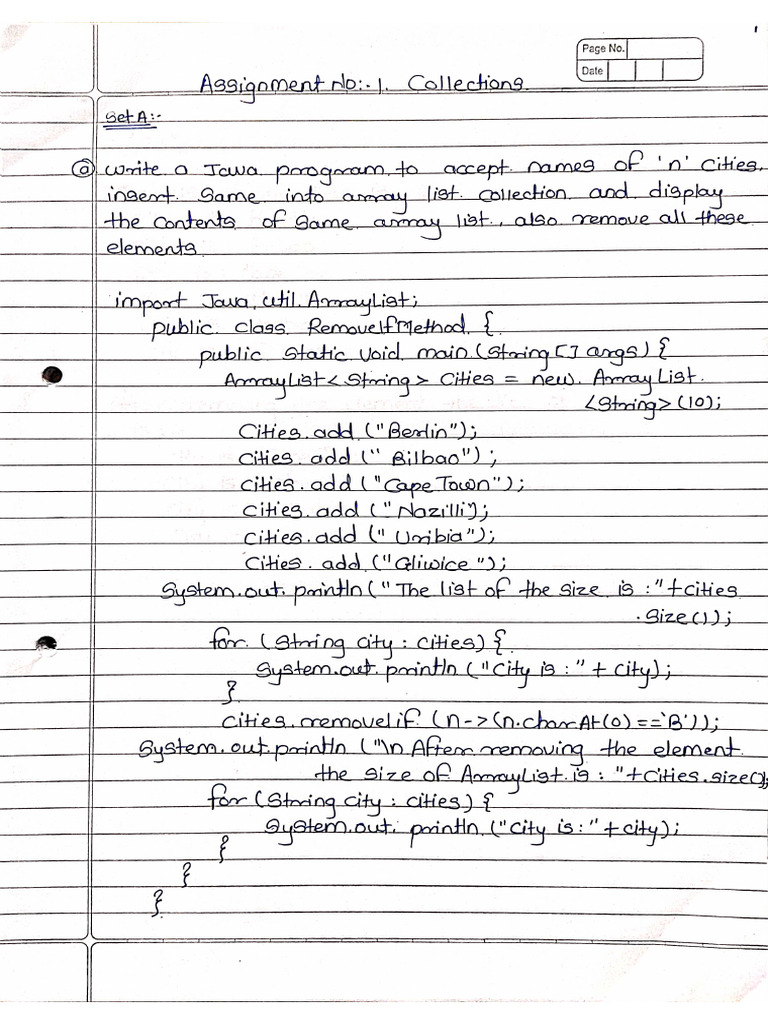 Page No.
Date
Assignment No:- 1. Collections.
Set A:-
(a) Write a Java program to accept names of 'n' Cities,
insert same into array list collection and display
the contents of same array list, also remove all these
elements
import Java.util.ArrayList;
public class RemoveIfMethod {
public static void main (String [] args) {
ArrayList<String> Cities = new ArrayList.
<String>(10);
Cities.add ("Berlin");
Cities.add (" Bilbao");
Cities.add ("Cape Town");
Cities.add ("Nazilli);
Cities.add (" Uribia");
Cities.add ("Gliwice");
System.out.println(" The list of the size is :"+cities
.Size());
for (String city : cities) {
System.out.println ("City is :" + city);
}
Cities.removeIif (n->(n.charAt(0)=='B'));
System.out.println ("\n After removing the element
the size of ArrayList is : "+Cities.size();
for (String city : cities) {
System.out. println ("City is:" + city);
}
}
}